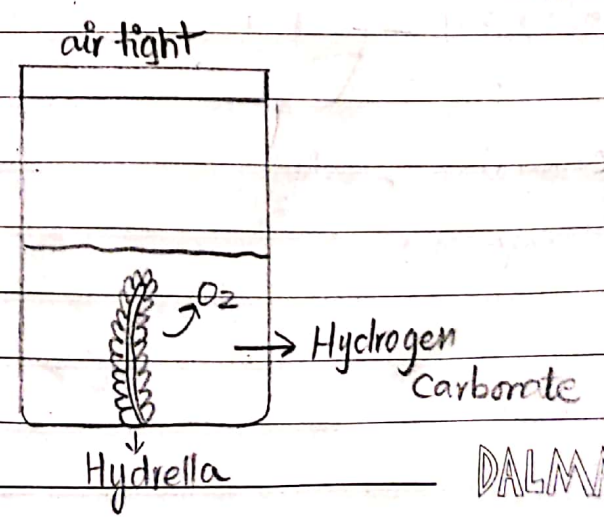 air tight
O2
Hydrogen
Carbonate
Hydrella